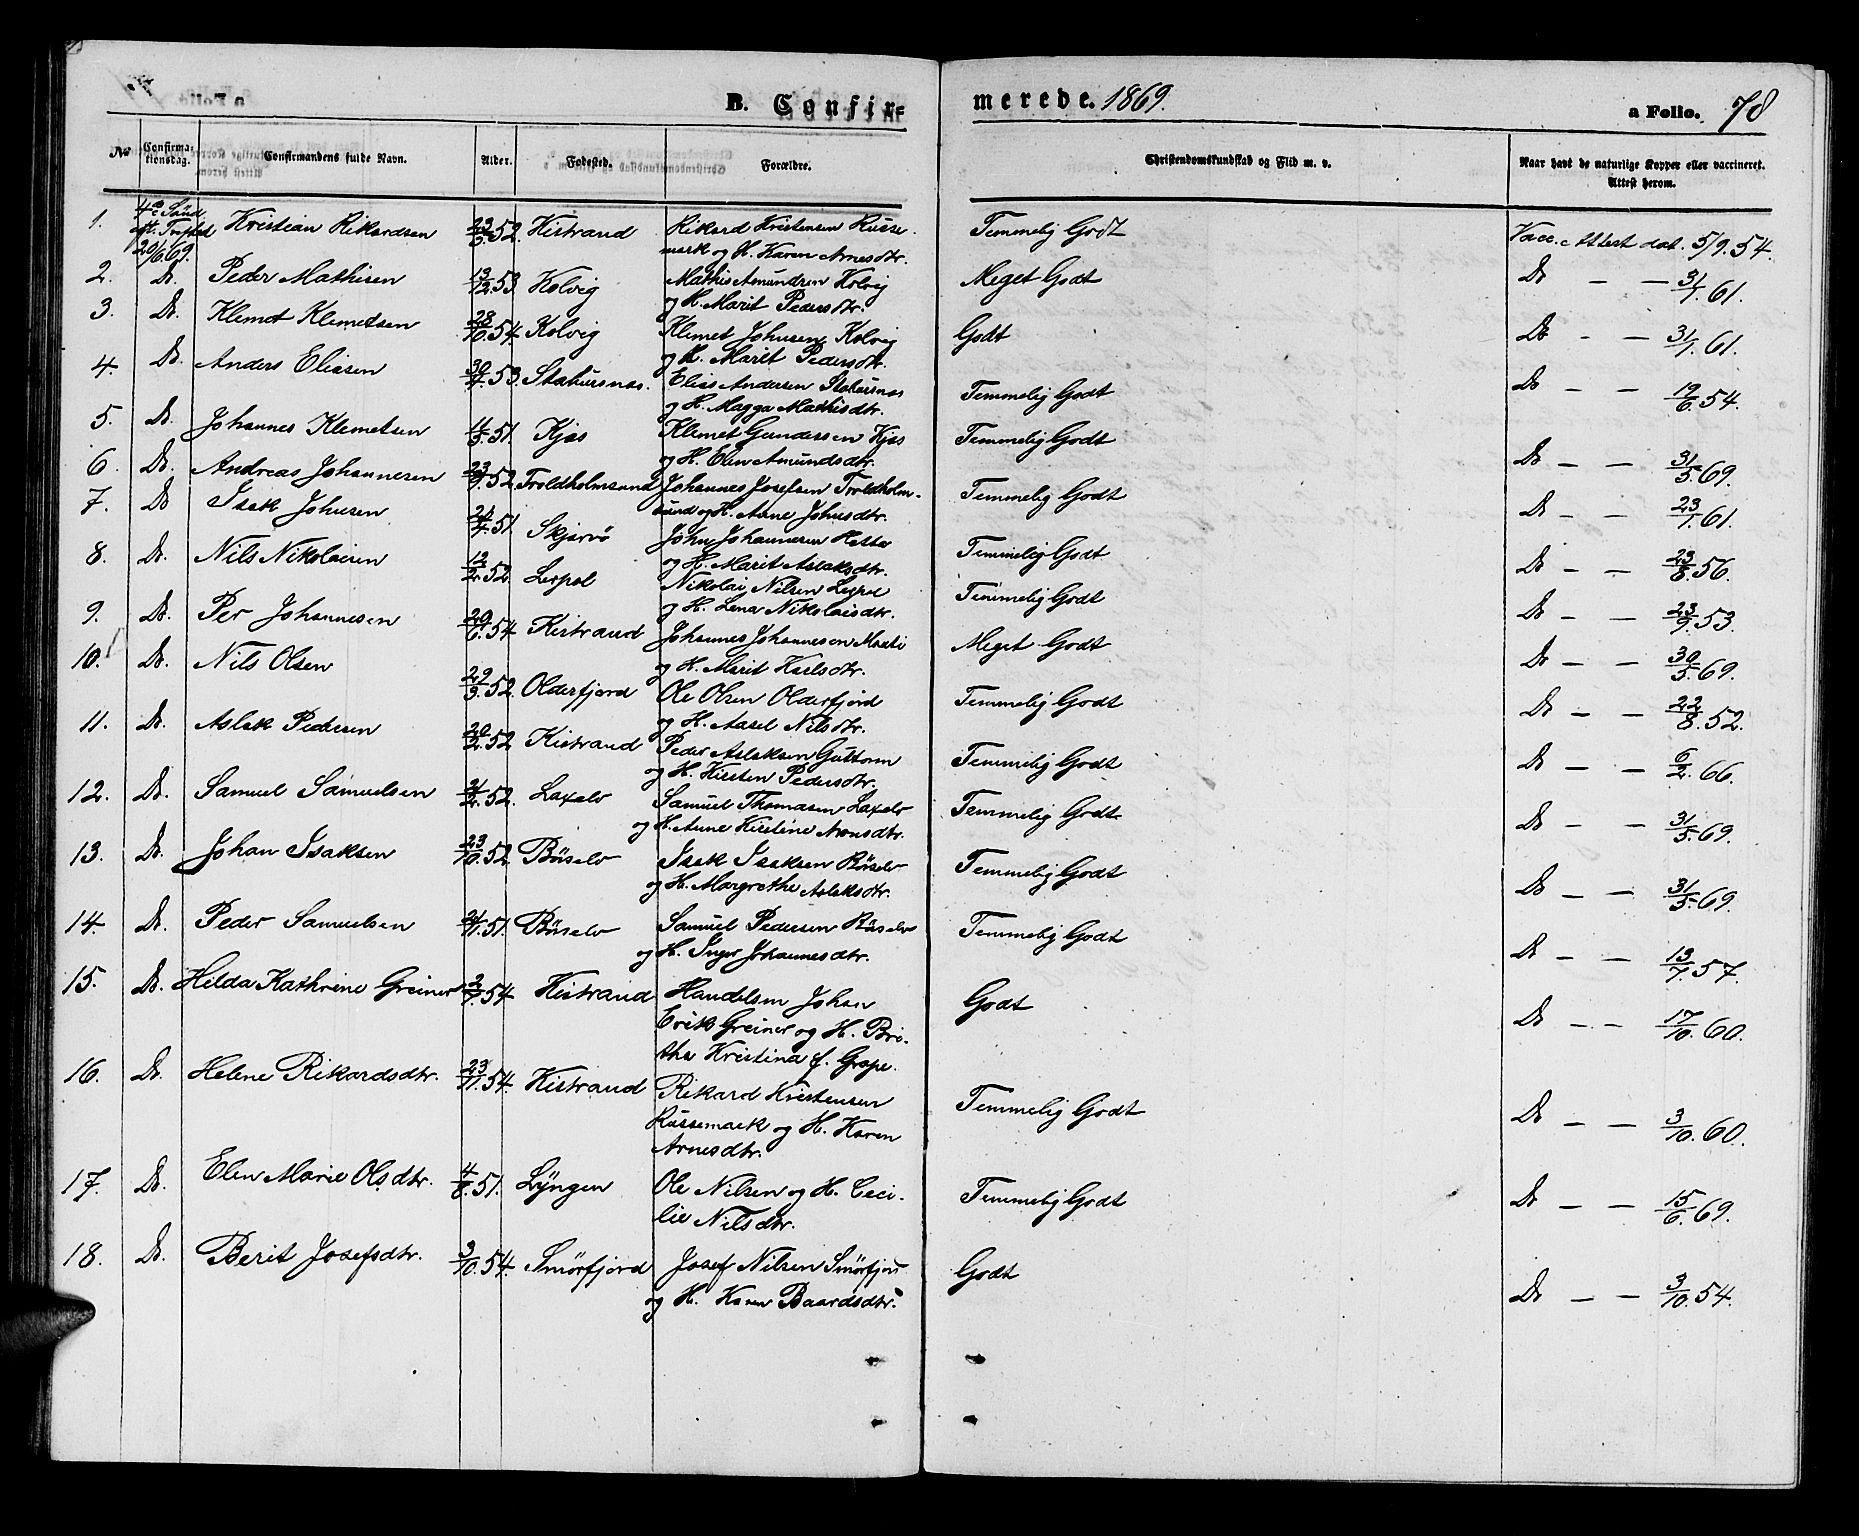 B. Confir-
merede. 1869.
a Folio. 78
No
Confirma-
tionsdag.
Confirmandens fulde Navn.
Alder.
Fødested.
Forældre.
Christendomskundskab og Flid m. v.
Naar havt de naturlige Kopper eller vaccineret.
Attest herom.
1. 4de Sönd. 20/6 69. Kristian Rikardsen 23/3 52. Kistrand Rikard Kristensen Russe- Temmelig Godt Vacc. Attest dat. 5/9. 54.
mark og H. Karen Arnesdtr.
2. Do. Peder Mathisen 13/12 53 Kolvig Mathis Amundsen Kolvig Meget Godt Do — — 31/1. 61.
og H. Marit Pedersdtr.
3. Do. Klemet Klemetsen 28/10. 54. Kolvig Klemet Johnsen Kolvig Godt Do — — 31/1. 61.
og H. Marit Pedersdtr.
4. Do. Anders Eliasen 30/4. 53. Stabursnæs. Elias Andersen Stabursnæs Temmelig Godt Do — — 12/6. 54.
og H. Magga Mathisdtr.
5. Do. Johannes Klemetsen 11/5. 51. Kjæs Klemet Gundersen Kjæs Temmelig Godt Do — — 31/5. 69.
og H. Elen Amundsdtr.
6. Do. Andreas Johannesen 23/9. 52. Troldholmsund Johannes Josefsen Troldholm- Temmelig Godt Do — — 23/1. 61.
sund og H. Anne Johnsdtr.
7. Do Isak Johnsen 21/4. 51. Skjærvö John Johannesen Temmelig Godt Do — — 23/8. 56.
og H. Marit Aslaksdtr.
8. Do. Nils Nikolaisen 12/2. 52. Lexpol Nikolai Nilsen Lexpol Temmelig Godt Do — — 23/9. 53.
og H. Lena Nikolaisdtr.
9. Do. Per Johannesen 20/6. 54. Kistrand Johannes Johannesen Meget Godt Do — — 30/5. 69.
og H. Marit Karlsdtr.
10. Do. Nils Olsen 29/3. 52. Olderfjord Ole Olsen Olderfjord Temmelig Godt Do — — 22/8. 52.
og H. Nilsdtr.
11. Do. Aslak Pedersen 20/2. 52 Kistrand Peder Aslaksen Guttorm Temmelig Godt Do — — 6/2. 66.
og H. Kirsten Pedersdtr.
12. Do. Samuel Samuelsen 21/2. 52. Laxelv Samuel Thomasen Laxelv Temmelig Godt Do — — 31/5. 69.
og H. Anne Kirstine
13. Do. Johan Isaksen 23/10. 52. Börselv Isak Isaksen Börselv Temmelig Godt Do — — 31/5. 69.
og H. Margrethe Aslaksdtr.
14. Do. Peder Samuelsen 21/1. 51. Börselv Samuel Pedersen Börselv Temmelig Godt Do — — 13/7. 57.
og H. Inger Johannesdtr.
15. Do. Hilda Kathrine Greiner 2/7. 54. Kistrand Handelsm Johan Godt Do — — 17/10. 60.
Erik Greiner og H. Bri-
tha Kristina f. Grape.
16. Do. Helene Rikardsdtr. 23/11. 54. Kistrand Rikard Kristensen Temmelig Godt Do — — 3/10. 60.
Russemark og H. Karen
Arnesdtr.
17. Do. Elen Marie Olsdtr. 4/8. 51. Lyngen Ole Nilsen og H. Ceci- Temmelig Godt Do — — 15/6. 69.
lie Nilsdtr.
18. Do. Berit Josefsdtr. 3/10. 54. Smörfjord Josef Nilsen Smörfjord Godt Do — — 3/10. 54.
og H. Karen Baardsdtr.